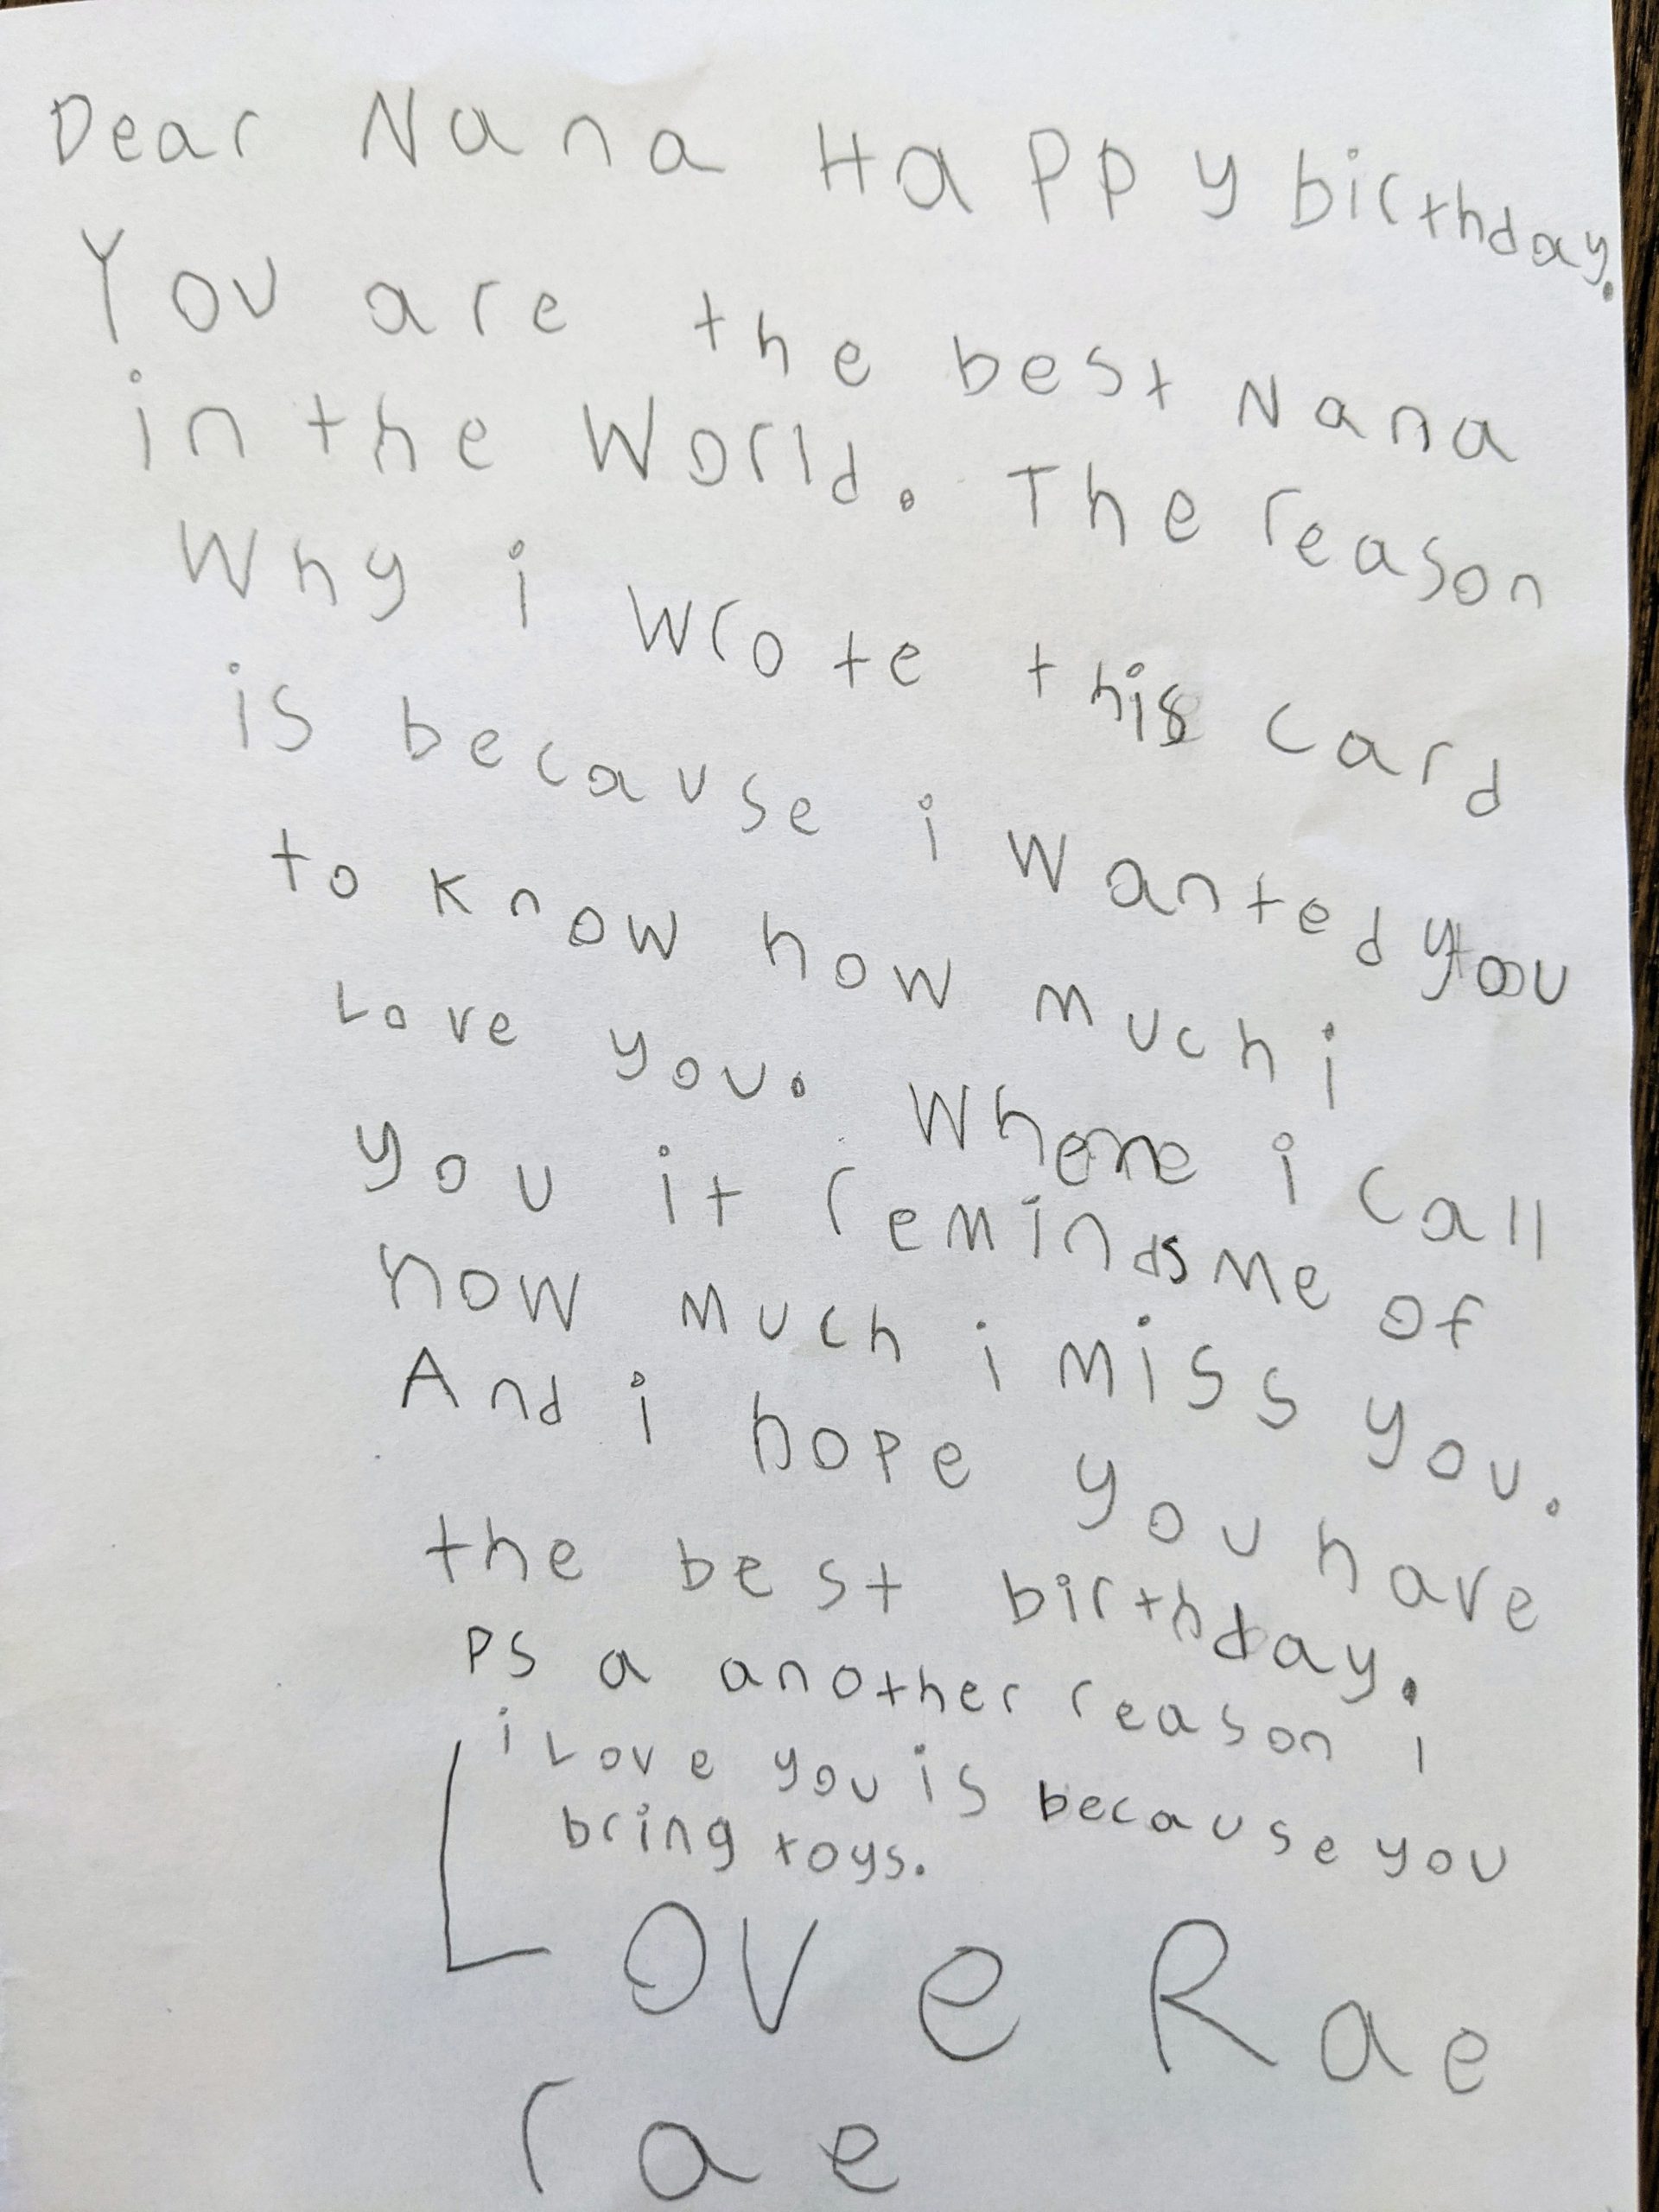 Dear Nana Happy birthday.
You are the best Nana
in the World. The reason
Why i wrote this card
is because i wanted you
to know how much i
Love you. When i call
you it reminds me of
how much i miss you.
And i hope you have
the best birthday.
PS a another reason i
i Love you is because you
bring toys.
Love Rae
rae